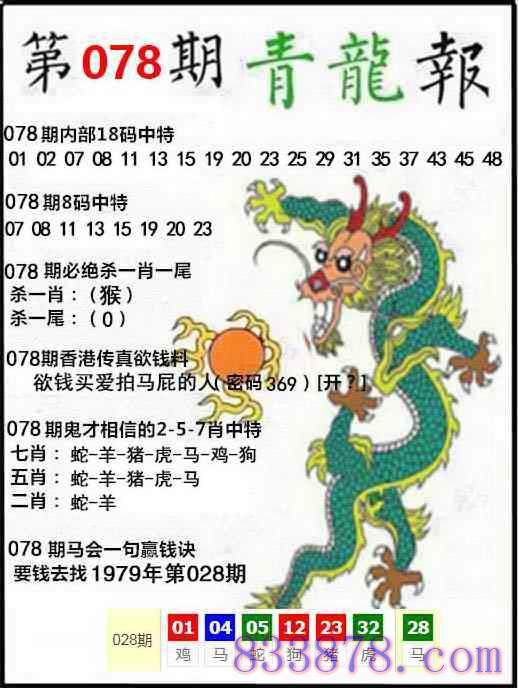 第078期青龍報
078期内部18码中特
01 02 07 08 11 13 15 19 20 23 25 29 31 35 37 43 45 48
078期8码中特
07 08 11 13 15 19 20 23
078 期必绝杀一肖一尾
杀一肖：(猴)
杀一尾：(0)
078期香港传真欲钱料
欲钱买爱拍马屁的人(密码369)[开?]
078期鬼才相信的2-5-7肖中特
七肖：蛇-羊-猪-虎-马-鸡-狗
五肖：蛇-羊-猪-虎-马
二肖：蛇-羊
078 期马会一句赢钱诀
要钱去找1979年第028期
028期 01 04 05 12 23 32 28
鸡 马 蛇 狗 猪 虎 马
833878.com